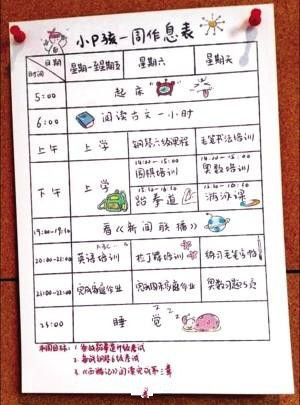 小P孩一周作息表
日期 星期一至星期五 星期六 星期天
时间
5:00 起床
6:00 阅读古文一小时
上午 上学 钢琴六级课程 毛笔书法培训
14:00-15:00 14:00-15:00
围棋培训 奥数培训
下午 上学
跆拳道 游泳课
19:00-19:30 看《新闻联播》
20:00-21:00 英语培训 拉丁舞培训 练习毛笔字帖
21:00-22:00 完成家庭作业 完成周末家庭作业 奥数习题5页
23:00 睡觉
本周目标: 1. 参加跆拳道升级考试
2. 备战钢琴6级考试
3. 《西游记》阅读完成第三章